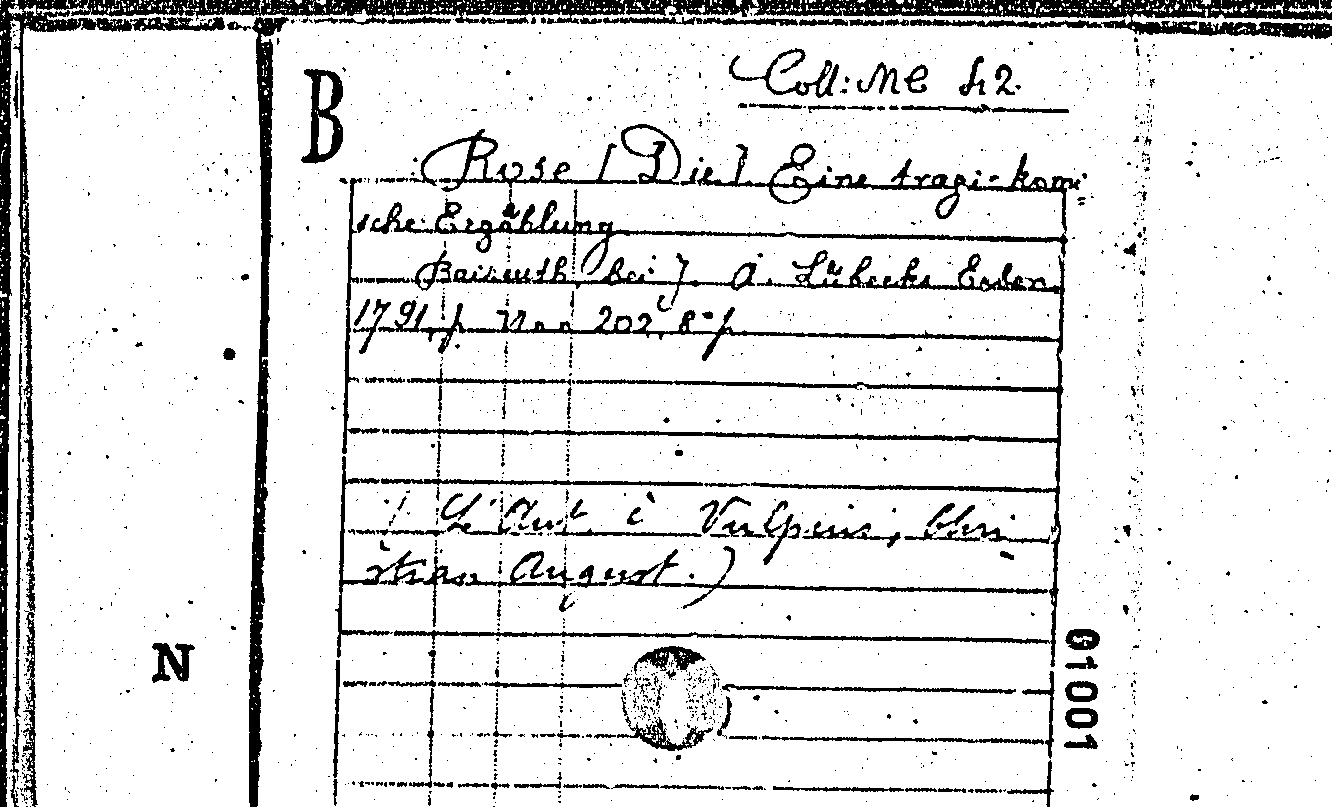 Coll: MC 42
B
Rose [Die]. Eine tragi-komi-
sche Erzählung
Baireuth, bei J. A. Lübecks Erben
1791, p. Non 202, 8° p.
(L'Aut. è Vulpius, Chri-
stian August.)
N
01001